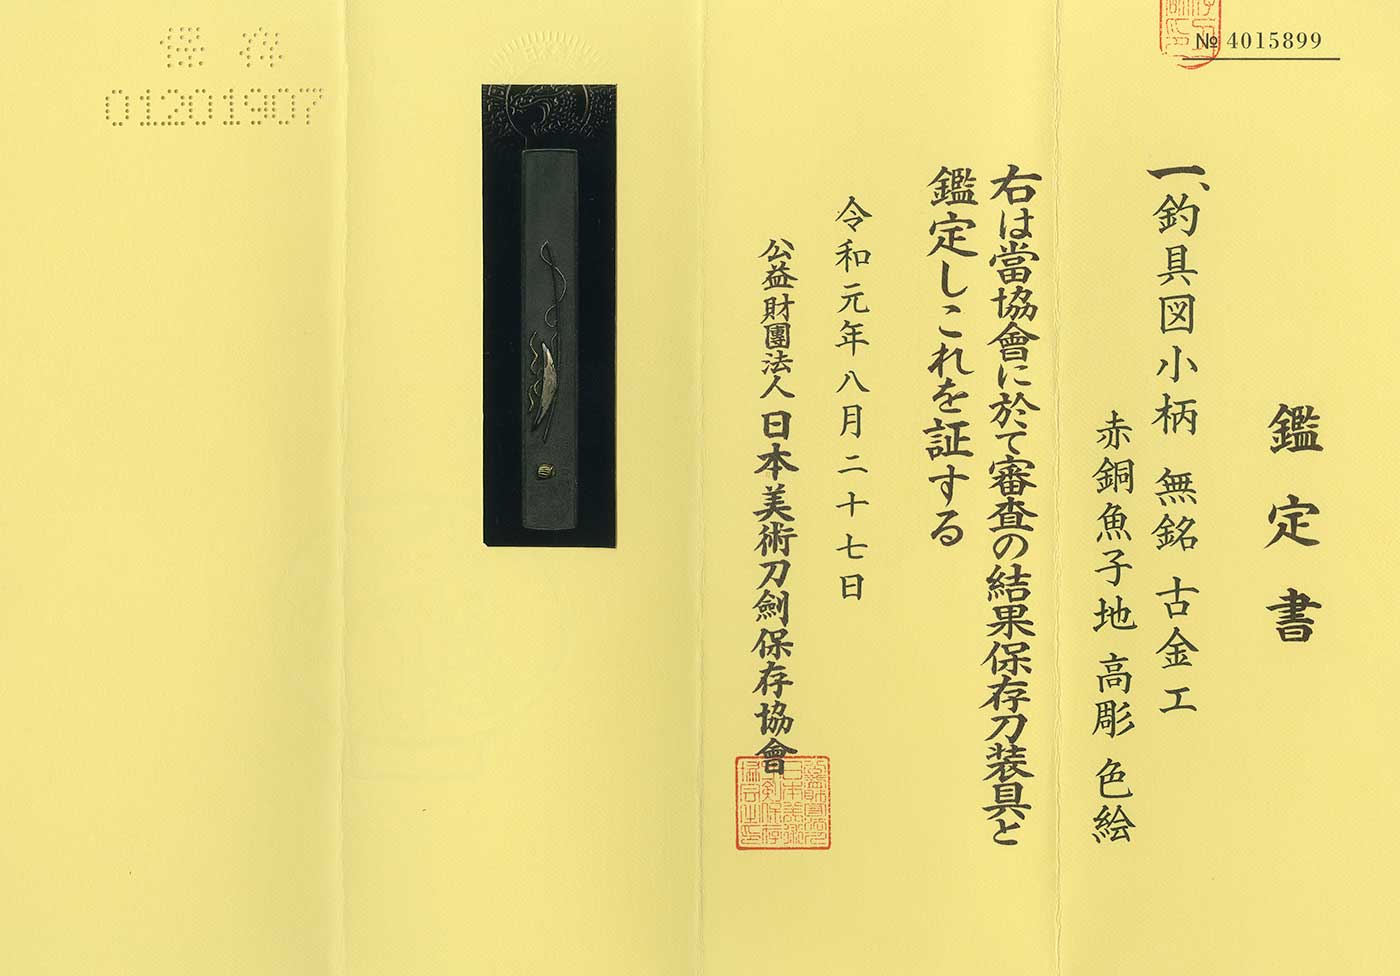 № 4015899
鑑定書
一、釣具図小柄 無銘 古金工
赤銅魚子地 高彫 色絵
右は當協會に於て審査の結果保存刀装具と
鑑定しこれを証する
令和元年八月二十七日
公益財團法人 日本美術刀劍保存協會
保存
01201907